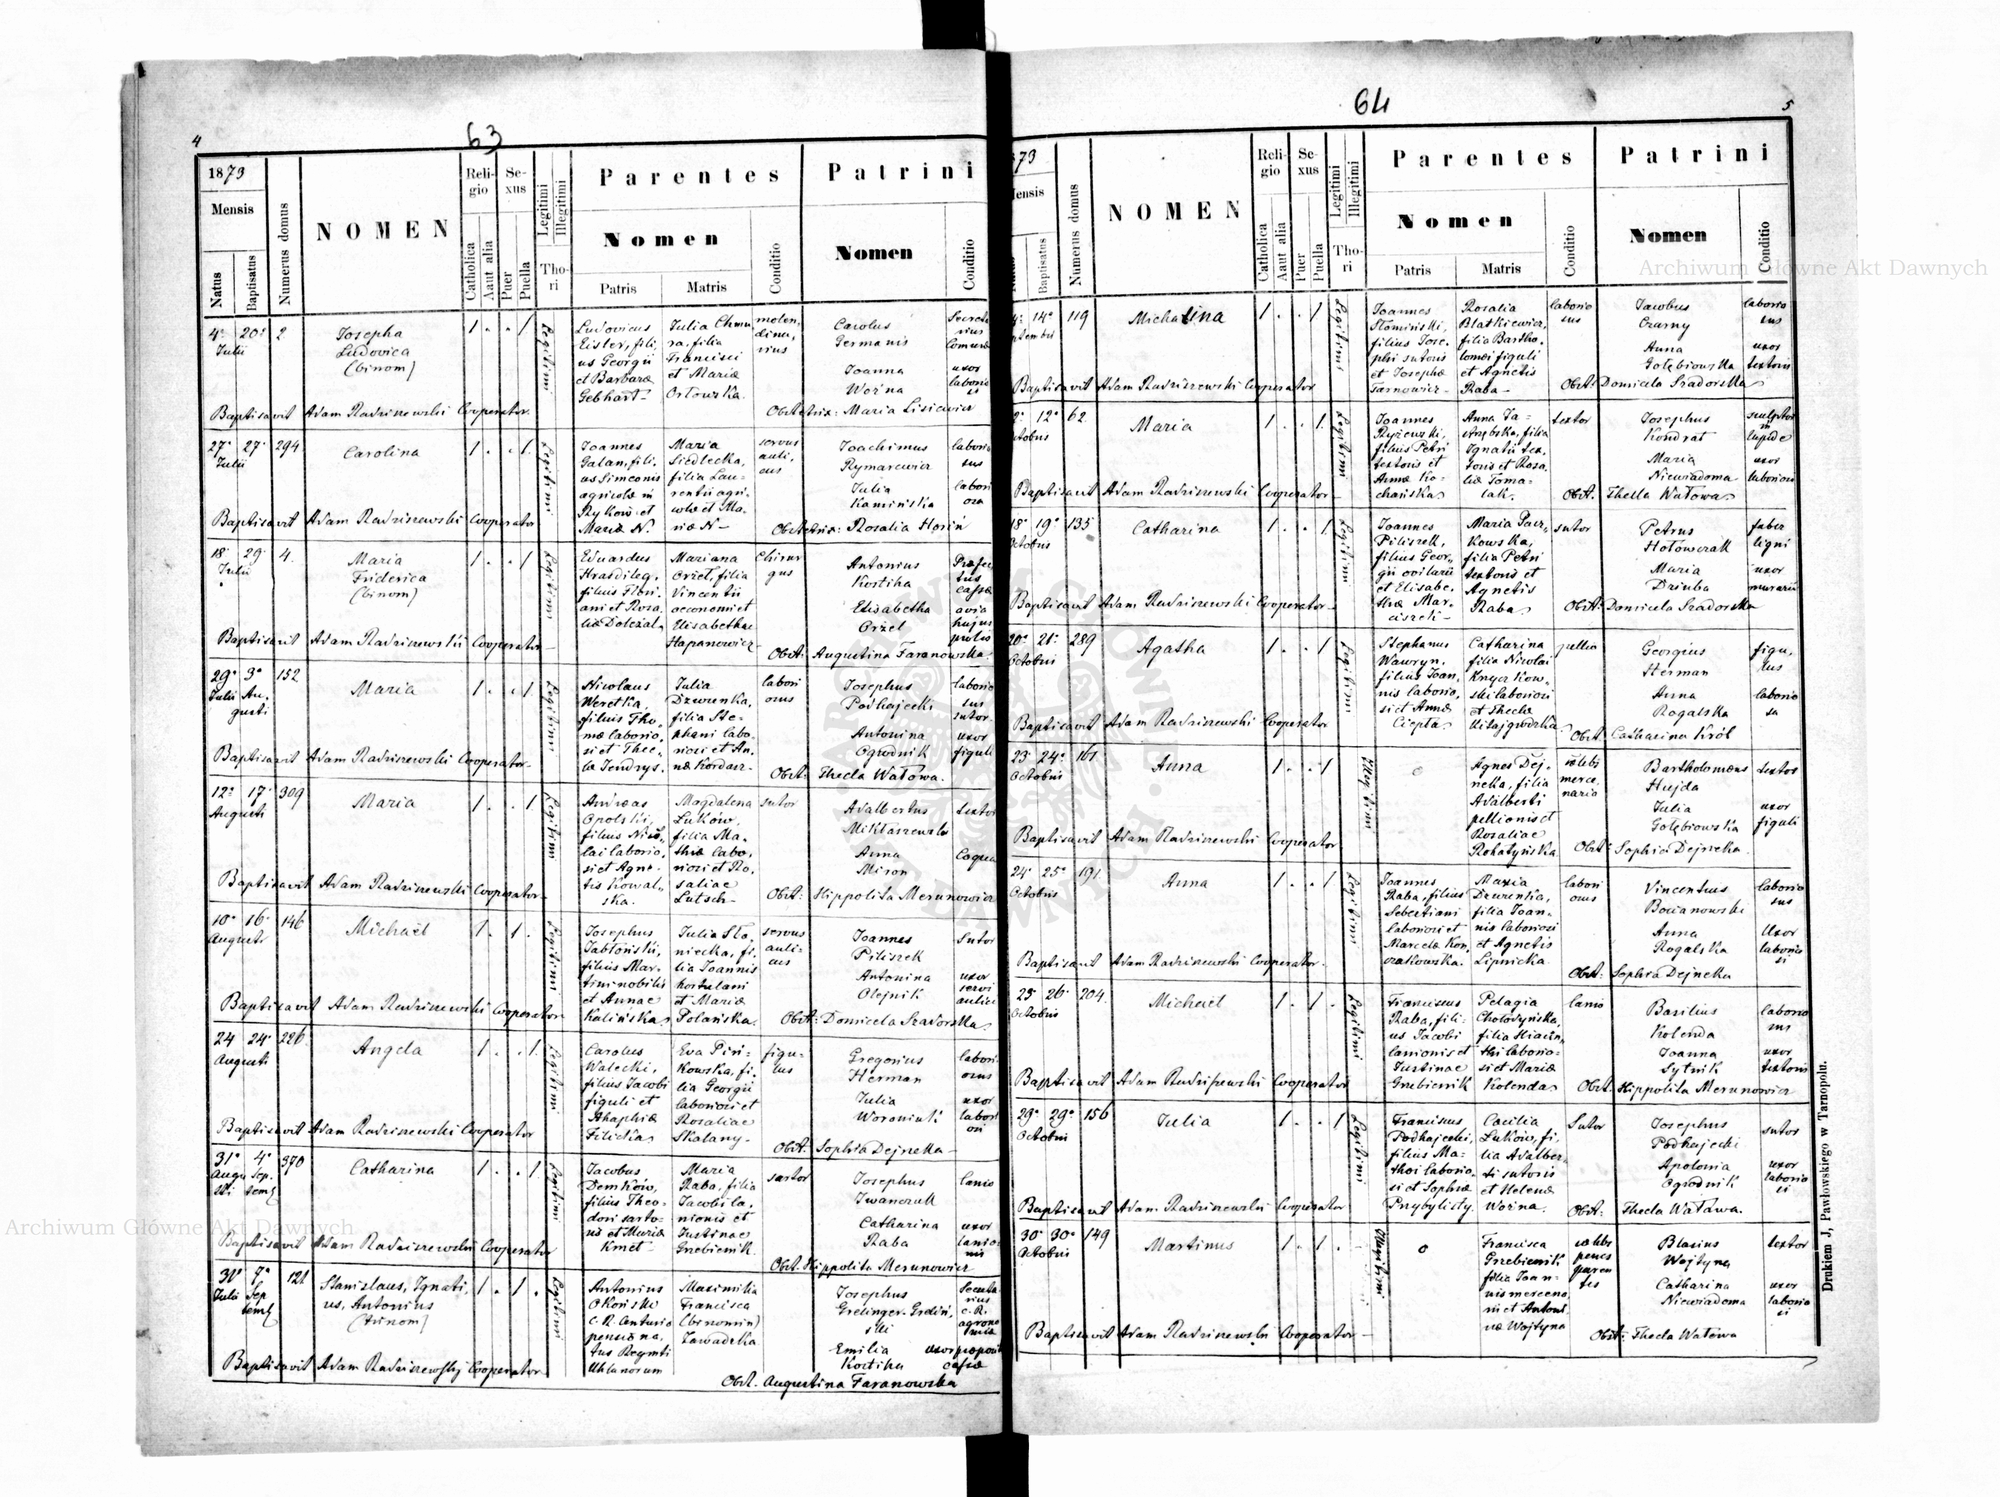 4
63
1873
Mensis
Natus
Baptisatus
Numerus domus
NOMEN
Religio
Catholica
Aaut alia
Sexus
Puer
Puella
Legitimi
Illegitimi
Thori
Parentes
Nomen
Patris
Matris
Conditio
Patrini
Nomen
Conditio
4a 20a 2
Julii
Josepha
Ludovica
(binom)
1 . . 1
Legitimi
Ludovicus
Eister, fili,
us Georgii
et Barbarae
Gebhart
Julia Chmu,
ra, filia
Francisci
et Mariae
Orłowska.
molen,
dina,
rius
Carolus
Germanis
Joanna
Woźna
Secreta
rius
Comune
uxor
laborio
si
Baptisavit Adam Radziszewski Cooperator.
Obstetrix: Maria Lisiewicz
27a 27a 294
Julii
Carolina
1 . . 1
Legitimi
Joannes
Galan, fili,
us Simeonis
agricolae in
Rykow et
Mariae N.
Maria
Siedlecka,
filia Lau-
rentii agri-
colae et Ma-
riae N-
servus
auli,
cus
Joachimus
Rymarewicz
Julia
Kamińska
laborio
sus
labori
osa
Baptisavit Adam Radziszewski Cooperator
Obstetrix: Rosalia
18 29 4.
Julii
Maria
Friderica
(binom)
1 . . 1
Legitimi
Eduardus
filius Flori-
ani et Rosa
liae Doležal
Mariana
Orzeł, filia
Vincentii
oeconomi et
Elisabethae
Hapanowicz
Chirur
gus
Antonius
Kostiha
Elisabetha
Orzeł
Praefec
tus
cassae
avia
hujus
prolis
Baptisavit Adam Radziszewski Cooperator
Obst: Augustina Taranowska
29a 3a 152
Julii Au-
gusti
Maria
1 . . 1
Legitimi
Nicolaus
Weretka,
filius Tho-
mae laborio,
si et Thec-
lae Jendrys.
Julia
Dzurenka,
filia Ste-
phani labo-
riosi et An-
nae Kordasz
labori
osus
Josephus
Podhajecki
Antonina
Ogrodnik
laborio
sus
sutor
uxor
figuli
Baptisavit Adam Radziszewski Cooperator
Obst: Thecla Watowa.
12a 17a 309
Augusti
Maria
1 . . 1
Legitimi
Andreas
Opolski,
filius Nico-
lai laborio,
si et Agne-
tis Kowal-
ska.
Magdalena
Luków,
filia Ma-
thiae labo,
riosi et Ro-
saliae
Lutsch
sutor
Adalbertus
Miklaszewski
Anna
Miron
textor
Coqua
Baptisavit Adam Radziszewski Cooperator
Obst: Hippolita Merunowicz
10a 16a 146
Augusti
Michaël
1 . 1 .
Legitimi
Josephus
Jabłoński,
filius Mar-
tini nobilis
et Annae
Kalińska
Julia Sło-
niecka, fi-
lia Joannis
hortulani
et Mariae
Polańska.
servus
auli-
cus
Joannes
Piliszek
Antonina
Olejnik
Sutor
uxor
servi
aulici
Baptisavit Adam Radziszewski Cooperator
Obst: Domicela Szadorska
24 24 226
Augusti
Angela
1 . . 1
Legitimi
Carolus
Walecki,
filius Jacobi
figuli et
Ahaphiae
Filicka
Eva Piń-
kowska, fi-
lia Georgii
laboriosi et
Rosaliae
Skalany
figu-
lus
Gregorius
Herman
Julia
Woroniuk
labori
osus
uxor
labori
osi
Baptisavit Adam Radziszewski Cooperator
Obst: Sophia Dejneka
31a 4a 370
Augu Sep.
sti temb
Catharina
1 . . 1
Legitimi
Jacobus
Demków,
filius Theo-
dori sarto-
ris et Mariae
Kmet
Maria
Raba, filia
Jacobi la,
nionis et
Justinae
Grzebienik.
sartor
Josephus
Iwanczuk
Catharina
Raba
lanio
uxor
lanio
nis
Baptisavit Adam Radziszewski Cooperator
Obst. Hippolita Merunowicz
31a 7a 121
Julii Sep
temb
Stanislaus, Ignati,
us, Antonius
(trinom)
1 . 1 .
Legitimi
Antonius
Okoński
c. R. Centurio
pensiona,
tus Regmti
Uhlanorum
Maximilia
Francisca
(binomin)
Zawadzka
Josephus
Emilia
Kostiha
Secreta-
rius
c. R.
agrono
miae
uxor praeposi
cassae
Baptisavit Adam Radziszewski Cooperator
Obst. Augustina Taranowska
64
5
73
Mensis
Natus
Baptisatus
Numerus domus
NOMEN
Religio
Catholica
Aaut alia
Sexus
Puer
Puella
Legitimi
Illegitimi
Thori
Parentes
Nomen
Patris
Matris
Conditio
Patrini
Nomen
Conditio
14a 119
Michalina
1 . . 1
Legitimi
Joannes
Słomiński,
filius Jose-
phi sutoris
et Josephae
Tarnowicz
Rosalia
Blatkiewicz,
filia Bartho-
lomei figuli
et Agnetis
Raba
laborio
sus
Jacobus
Czarny
Anna
Gołębiowska
laborio
sus
uxor
textoris
Baptisavit Adam Radziszewski Cooperator
Obst: Domicela Szadorska
2a 12a 62
Octobris
Maria
1 . . 1
Legitimi
Joannes
Ryżewski,
filius Petri
textoris et
Annae Ko-
chańska
Anna Ja-
strębska, filia
Ignatii tex,
toris et Rosa
liae Toma-
lak.
textor
Josephus
Kondrat
Maria
Niewiadoma
sculptor
in
lapide
uxor
laboriosi
Baptisavit Adam Radziszewski Cooperator
Obst: Thecla Watowa
18a 19a 135
Octobris
Catharina
1 . . 1
Legitimi
Joannes
Piliszek,
filius Geor-
gii ovilarii
et Elisabe-
thae Mar-
ciszek
Maria Pacz-
kowska,
filia Petri
textoris et
Agnetis
Raba
sutor
Petrus
Hołowczak
Maria
Dziuba
faber
ligni
uxor
murarii
Baptisavit Adam Radziszewski Cooperator
Obst: Domicela Szadorska
20a 21a 289
Octobris
Agatha
1 . . 1
Legitimi
Stephanus
Wawryn,
filius Joan,
nis laborio,
si et Annae
Ciepta
Catharina
filia Nicolai
Knyszkow-
ski laboriosi
et Theclae
Kitajgrodzka
pellio
Georgius
Herman
Anna
Rogalska
figu,
lus
laborio
sa
Baptisavit Adam Radziszewski Cooperator
Obst: Catharina Król
23a 24a 161
Octobris
Anna
1 . . 1
Illegitimi
o
Agnes Dej-
neka, filia
Adalberti
pellionis et
Rosaliae
Rohatyńska
coelebs
merce,
naria
Bartholomeus
Hujda
Julia
Gołębiowska
textor
uxor
figuli
Baptisavit Adam Radziszewski Cooperator
Obst: Sophia Dejneka.
24a 25a 191
Octobris
Anna
1 . . 1
Legitimi
Joannes
Raba, filius
Sebastiani
laboriosi et
Marcelae Kon,
czakowska.
Maria
Dzurenka,
filia Joan-
nis laboriosi
et Agnetis
Lipnicka
labori
osus
Vincentius
Bocianowski
Anna
Rogalska
laborio
sus
Uxor
laborio
si
Baptisavit Adam Radziszewski Cooperator
Obst: Sophia Dejneka
25a 26a 204.
Octobris
Michaël
1 . 1 .
Legitimi
Franciscus
Raba, fili-
us Jacobi
lanionis et
Justinae
Grzebienik
Pelagia
Chołodyńska,
filia Hiacin,
thi laborio-
si et Mariae
Kolenda
lanio
Basilius
Kolenda
Joanna
Sytnik
laborio
sus
uxor
textoris
Baptisavit Adam Radziszewski Cooperator
Obst. Hippolita Merunowicz
29a 29a 156
Octobris
Julia
1 . . 1
Legitimi
Franciscus
Podhajecki,
filius Ma-
thei laborio-
si et Sophiae
Przybylisty.
Caecilia
Luków, fi,
lia Adalber-
ti sutoris
et Helenae
Woźna.
Sutor
Josephus
Podhajecki
Apolonia
Ogrodnik
sutor
uxor
laborio
si
Baptisavit Adam Radziszewski Cooperator
Obst: Thecla Watawa.
30a 30a 149
Octobris
Martinus
1 . 1 .
Illegitimi
o
Francisca
Grzebienik
filia Joan-
nis mercena
rii et Antoni-
nae Wojtyna
coelebs
penes
paren
tes
Blasius
Wojtyna
Catharina
Niewiadoma
textor
uxor
laborio
si
Baptisavit Adam Radziszewski Cooperator
Obst: Thecla Watowa
Drukiem J. Pawłowskiego w Tarnopolu.
Archiwum Główne Akt Dawnych
Archiwum Główne Akt Dawnych